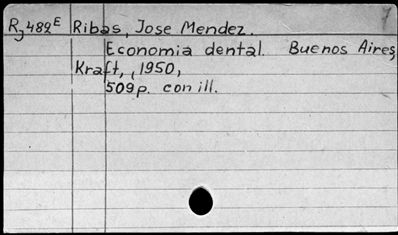 RJ482E Ribas, Jose Mendez.
Economia dental. Buenos Aires,
Kraft, , 1950,
509p. con ill.